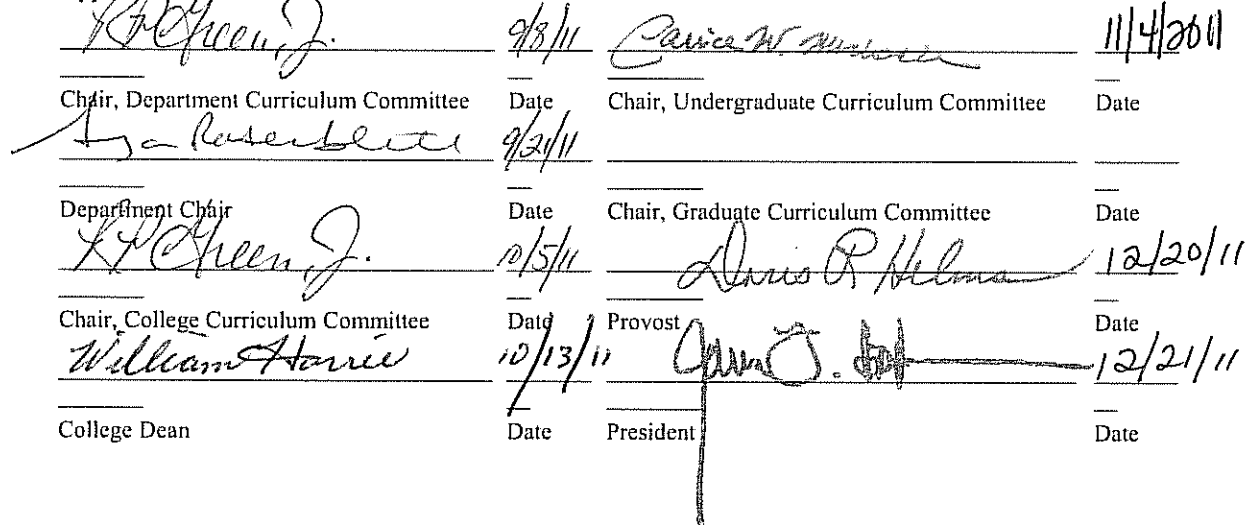 R P Green, Jr. 9/8/11 W. 11/4/2011
Chair, Department Curriculum Committee Date Chair, Undergraduate Curriculum Committee Date
9/21/11
Department Chair Date Chair, Graduate Curriculum Committee Date
R P Green, Jr. 10/5/11 Doris R Helms 12/20/11
Chair, College Curriculum Committee Date Provost Date
William Harris 10/13/11 12/21/11
College Dean Date President Date